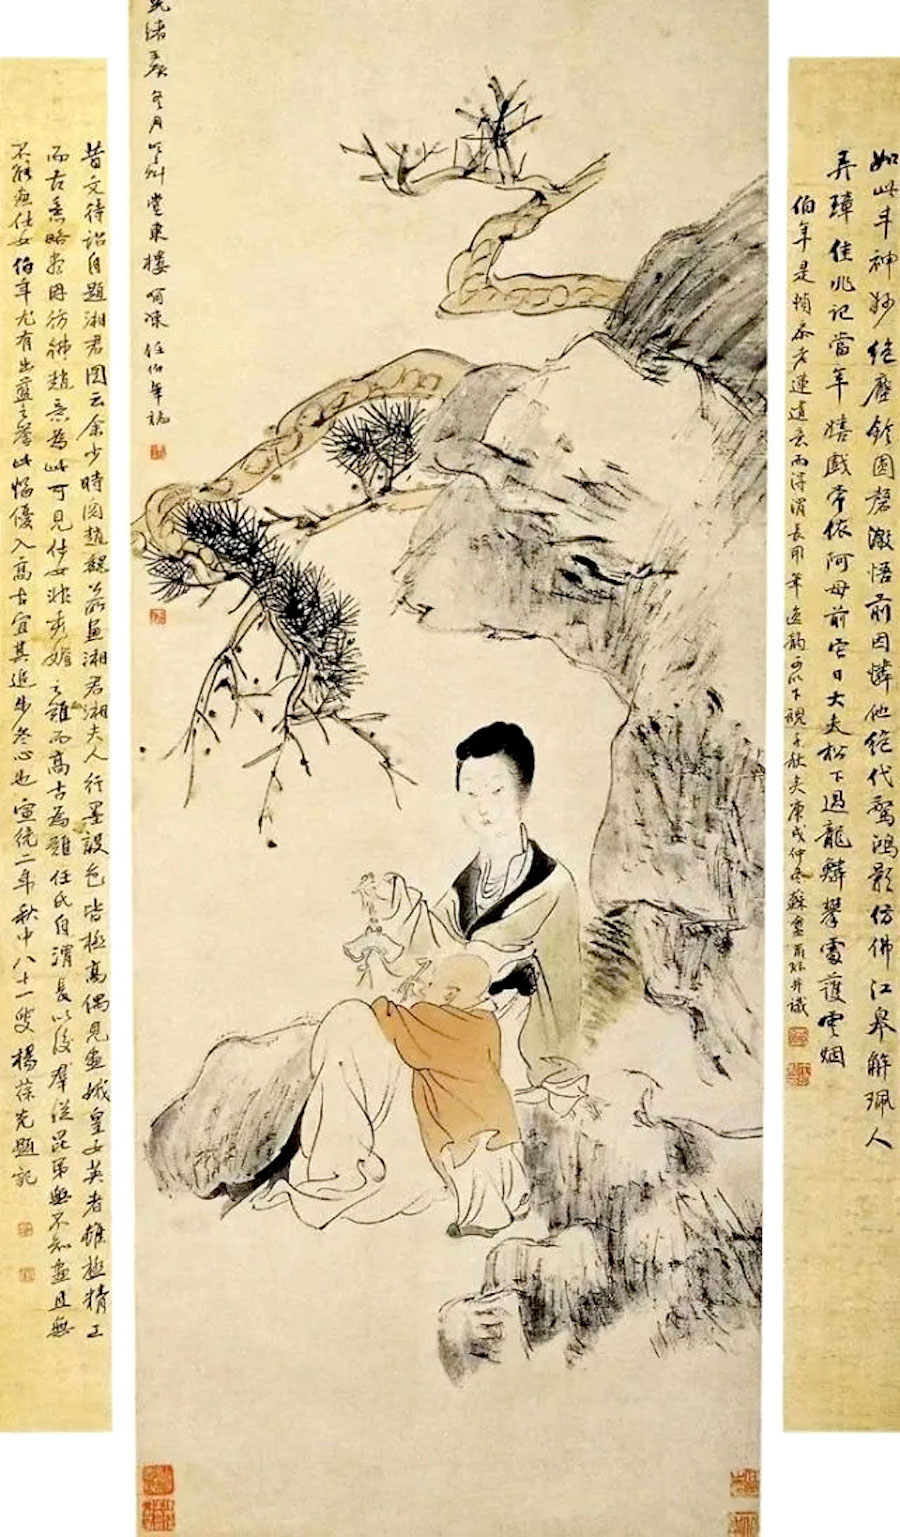 如此丰神妙絕塵鈴圓磬澈悟前因憐他絕代驚鴻影仿佛江皋解珮人
弄璋佳兆記當年嬉戲常依阿母前它日大夫松下過龍鱗攀處護雲烟
伯年是幀 老蓮遺意而得渭長用筆逸韵可以下視千秋矣庚戌仲冬蘇盦 并識
光緒 冬月 堂東樓呵凍任伯年識
昔文待詔自題湘君圖云余少時閱趙魏公所畫湘君湘夫人行墨設色皆極高偶見畫娥皇女英者雖極精工
而古意略盡因彷彿趙意為此可見仕女非秀媚之難而高古為難任氏自渭長以後群從昆弟無不知畫且無
不能画仕女伯年尤有出藍之譽此幅優入高古宜其進步 心也宣統二年秋中八十一叟楊葆光題記